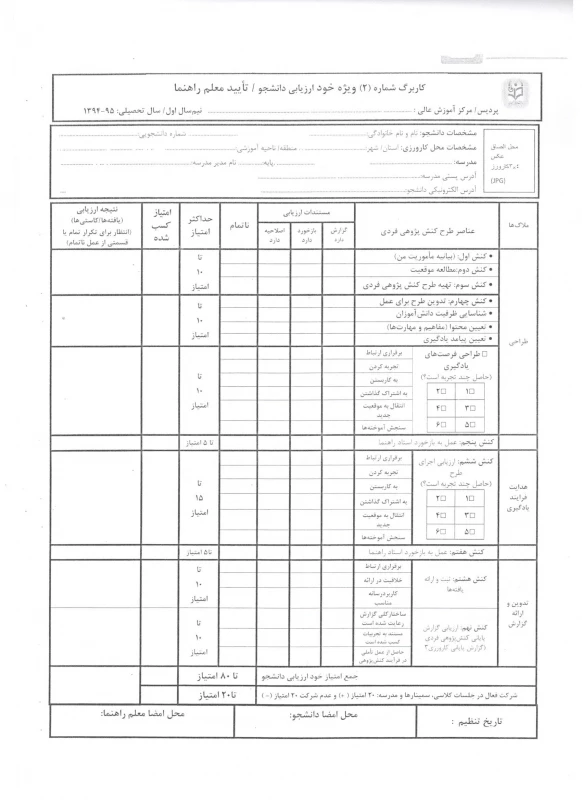 کاربرگ شماره (۲) ویژه خود ارزیابی دانشجو / تأیید معلم راهنما
پردیس/ مرکز آموزش عالی : نیم‌سال اول/ سال تحصیلی: ۹۵-۱۳۹۴
مشخصات دانشجو: نام و نام خانوادگی: شماره دانشجویی:
مشخصات محل کارورزی: استان/ شهر: منطقه/ ناحیه آموزشی:
مدرسه: پایه: نام مدیر مدرسه:
آدرس پستی مدرسه:
آدرس الکترونیکی دانشجو:
محل الصاق
عکس
۳*۴کارورز
(JPG)
ملاک‌ها
عناصر طرح کنش پژوهی فردی
مستندات ارزیابی
گزارش دارد
بازخورد دارد
اصلاحیه دارد
ناتمام
حداکثر امتیاز
امتیاز کسب شده
نتیجه ارزیابی
(یافته‌ها/کاستی‌ها)
(انتظار برای تکرار تمام یا
قسمتی از عمل ناتمام)
طراحی
• کنش اول: (بیانیه مأموریت من)
• کنش دوم:مطالعه موقعیت
• کنش سوم: تهیه طرح کنش پژوهی فردی
تا ۱۰ امتیاز
• کنش چهارم: تدوین طرح برای عمل
• شناسایی ظرفیت دانش‌آموزان
• تعیین محتوا (مفاهیم و مهارت‌ها)
• تعیین پیامد یادگیری
تا ۱۰ امتیاز
□ طراحی فرصت‌های
یادگیری
(حاصل چند تجربه است؟)
□۱ □۲
□۳ □۴
□۵ □۶
برقراری ارتباط
تجربه کردن
به کاربستن
به اشتراک گذاشتن
انتقال به موقعیت جدید
سنجش آموخته‌ها
تا ۱۰ امتیاز
کنش پنجم: عمل به بازخورد استاد راهنما
تا ۵ امتیاز
هدایت
فرایند
یادگیری
کنش ششم: ارزیابی اجرای
طرح
(حاصل چند تجربه است؟)
□۱ □۲
□۳ □۴
□۵ □۶
برقراری ارتباط
تجربه کردن
به کاربستن
به اشتراک گذاشتن
انتقال به موقعیت جدید
سنجش آموخته‌ها
تا ۱۵ امتیاز
کنش هفتم: عمل به بازخورد استاد راهنما
تا۵ امتیاز
تدوین و
ارائه
گزارش
کنش هشتم: ثبت و ارائه
یافته‌ها
برقراری ارتباط
خلاقیت در ارائه
کاربرد رسانه مناسب
تا ۱۰ امتیاز
کنش نهم: ارزیابی گزارش
پایانی کنش‌پژوهی فردی
(گزارش پایانی کارورزی۳
ساختار کلی گزارش رعایت شده است
مستند به تجربیات کسب شده است
حاصل از عمل تأملی در فرآیند کنش‌پژوهی
تا ۱۰ امتیاز
جمع امتیاز خود ارزیابی دانشجو
تا ۸۰ امتیاز
شرکت فعال در جلسات کلاسی، سمینارها و مدرسه: ۲۰ امتیاز (+) و عدم شرکت ۲۰ امتیاز (-)
تا۲۰ امتیاز
تاریخ تنظیم :
محل امضا دانشجو:
محل امضا معلم راهنما: